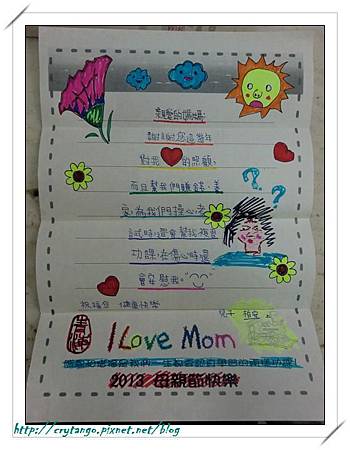 親愛的媽媽:
謝謝您這幾年
對我 的照顧,
而且幫我們賺錢、養
家,為我們操心,考
試時還會幫我複習
功課,在傷心時還
會安慰我。
祝福您 健康快樂
兒子
I Love Mom
2013 母親節快樂
http://crytango.pixnet.net/blog